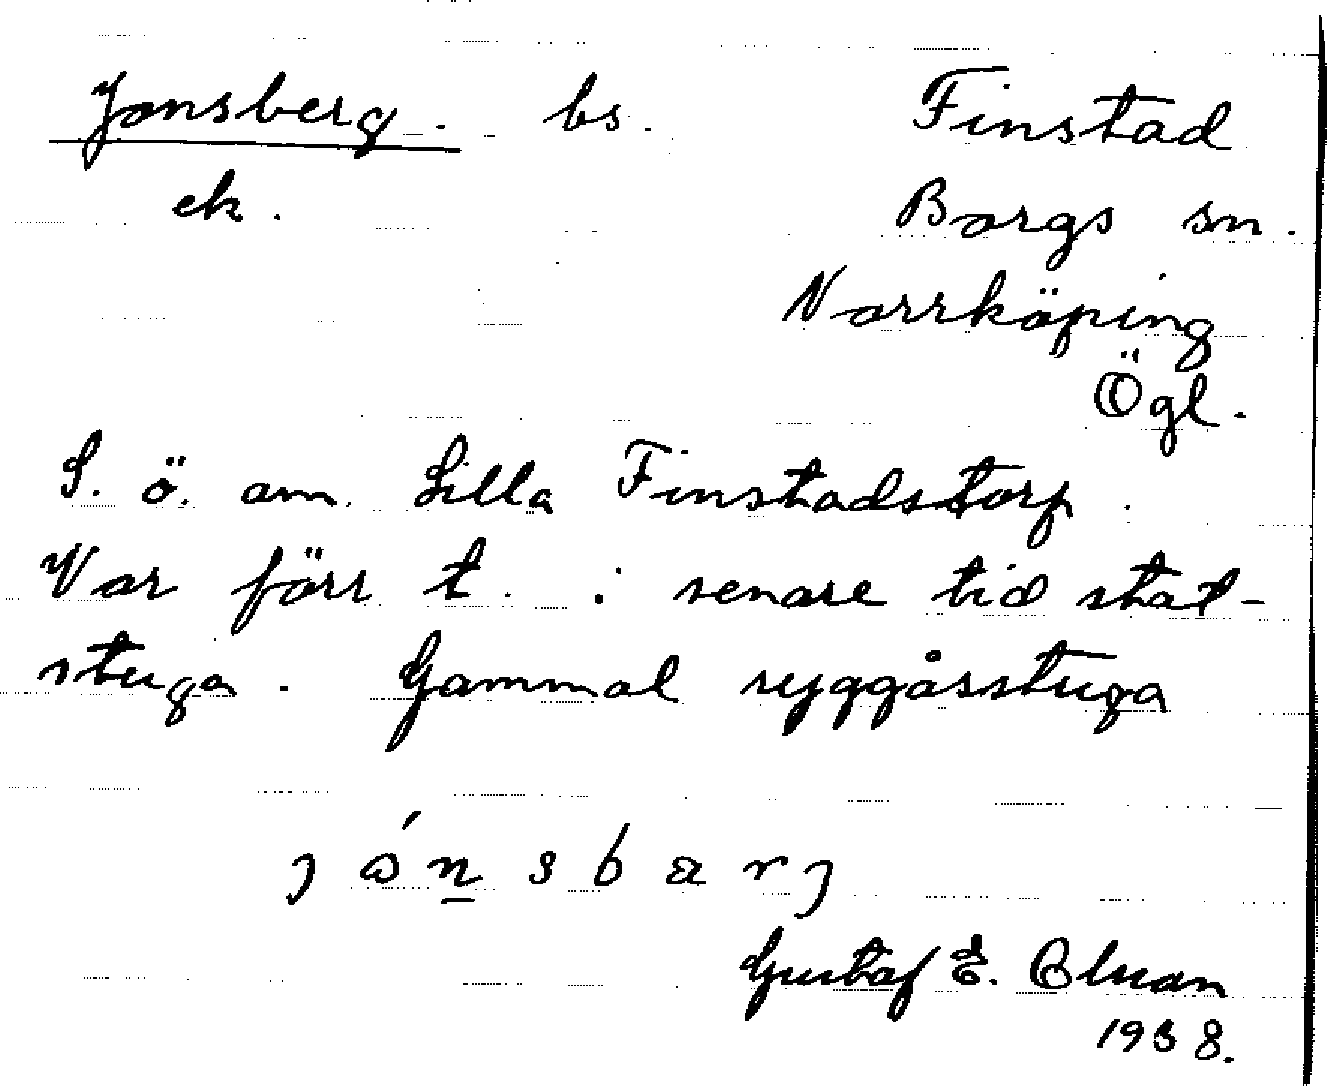 Jonsberg. bs. Finstad
ek. Borgs sn.
Norrköping
Ögl.
S. ö. om Lilla Finstadstorp.
Var förr t. i senare tid stat-
stuga. Gammal ryggåsstuga
Gustaf E.
1938.